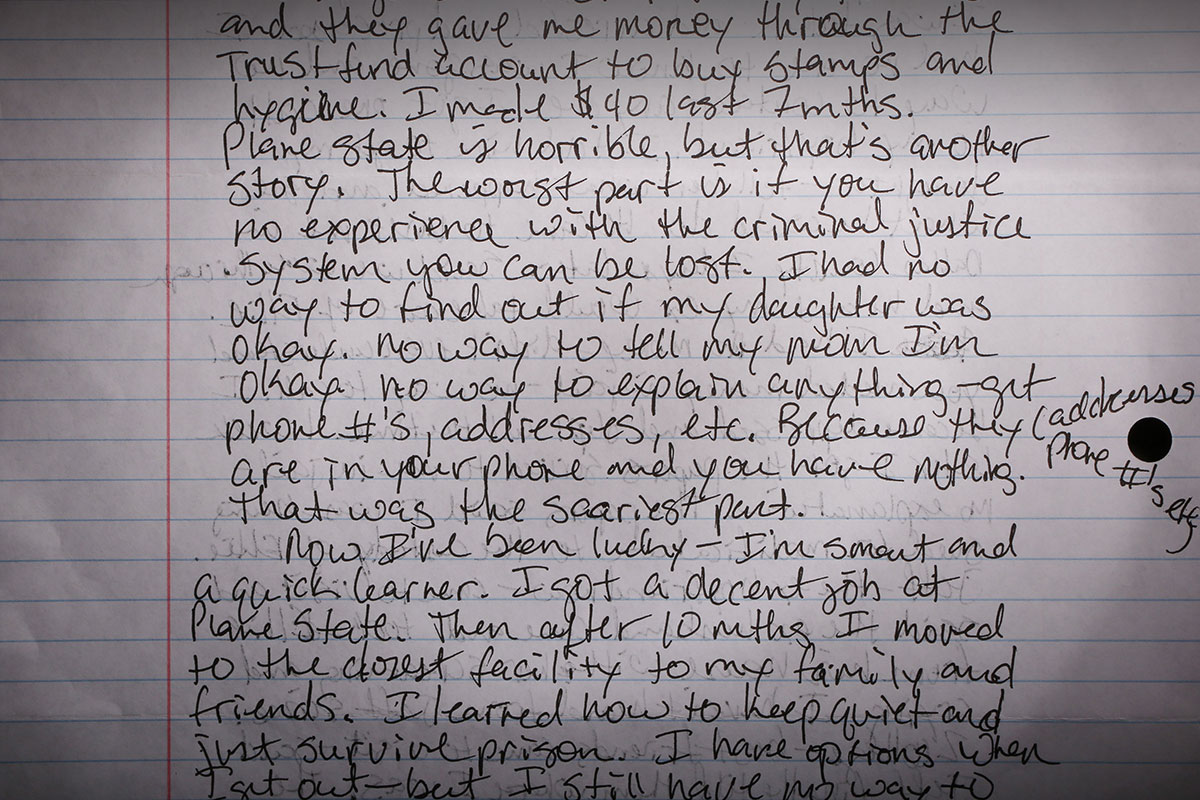 and they gave me money through the
Trustfund account to buy stamps and
hygiene. I made $40 last 7mths.
Plane State is horrible, but that's another
story. The worst part is if you have
no experience with the criminal justice
system you can be lost. I had no
way to find out if my daughter was
okay. no way to tell my mom I'm
okay. no way to explain anything - get
phone #'s, addresses, etc. Because they (addresses
phone #'s etc)
are in your phone and you have nothing.
That was the scariest part.
Now I've been lucky - I'm smart and
a quick learner. I got a decent job at
Plane State. Then after 10 mths I moved
to the closest facility to my family and
friends. I learned how to keep quiet and
just survive prison. I have options when
I get out - but I still have no way to